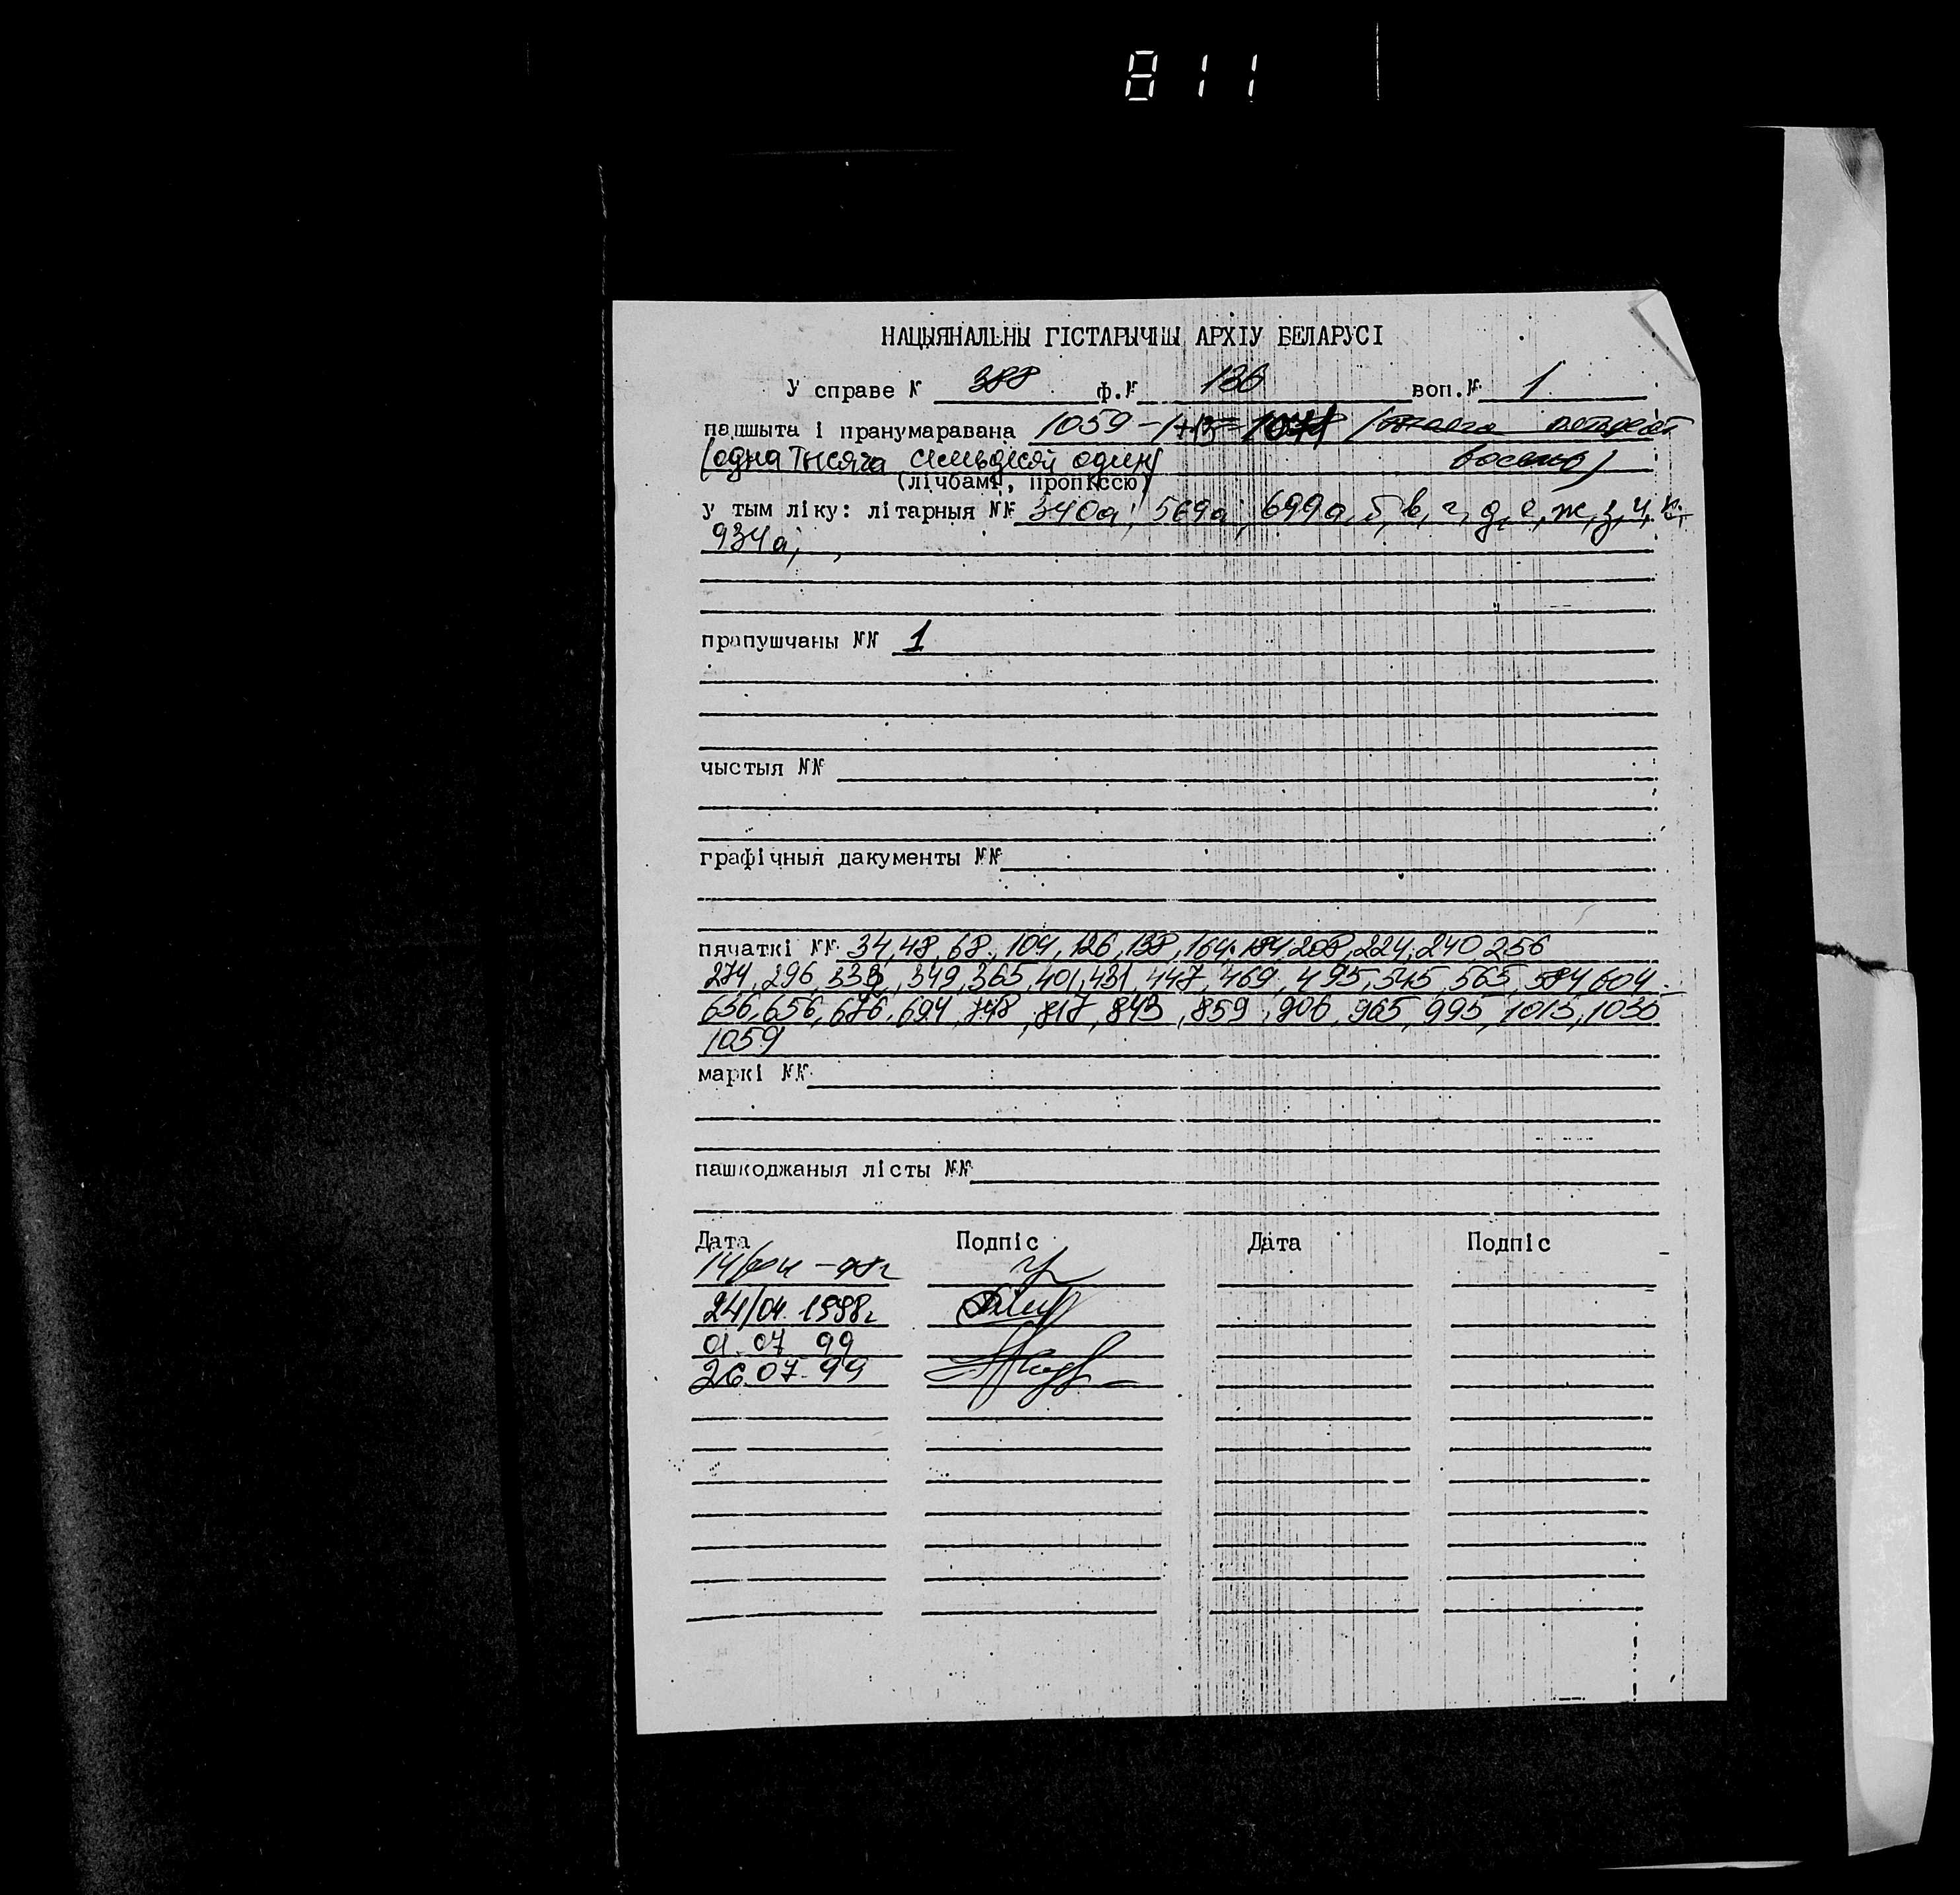 811
НАЦЫЯНАЛЬНЫ ГІСТАРЫЧНЫ АРХІУ БЕЛАРУСІ
У справе № 388 ф.№ 136 воп.№ 1
падшыта і пранумаравана 1059 - 1+13= 1071 (тысяча пятьдесят
(одна тысяча семьдесят один) восемь)
(лічбамі, пропіссю)
у тым ліку: літарныя №№ 340а; 569а; 699а, б, в, г, д, е, ж, з, и, к.
934а;
прапушчаны №№ 1
чыстыя №№
графічныя дакументы №№
пячаткі №№ 34, 48, 68, 104, 126, 138, 164, 184, 208, 224, 240, 256
274, 296, 333, 349, 365, 401, 431, 447, 469, 495, 545, 565, 584, 604
636, 656, 676, 694, 748, 817, 843, 859, 906, 965, 995, 1013, 1030
1059
маркі №№
пашкоджаныя лісты №№
Дата Подпіс Дата Подпіс
24/04. 1998г
01. 07 99
26.07.99